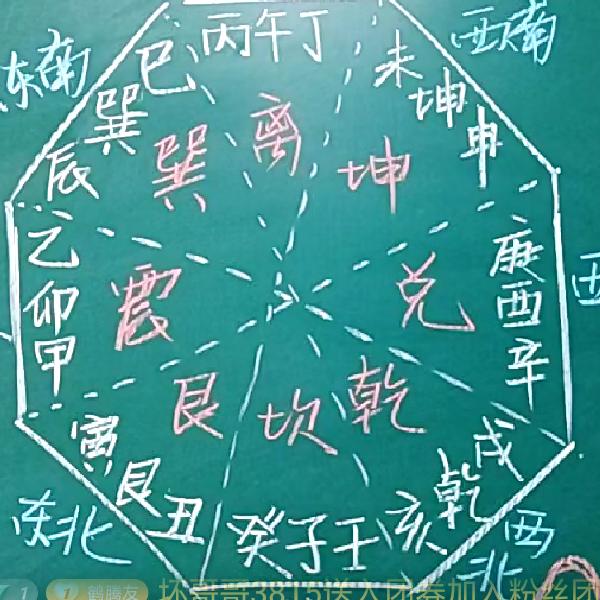 东南
西南
巳
丙午丁
未
巽
坤
辰
申
巽
离
坤
乙
卯
甲
震
兑
庚
酉
辛
西
艮
坎
乾
寅
艮
丑
癸子壬
亥
乾
戌
东北
西北
1
1 鹤腾友
坏哥哥3815送入团券加入粉丝团